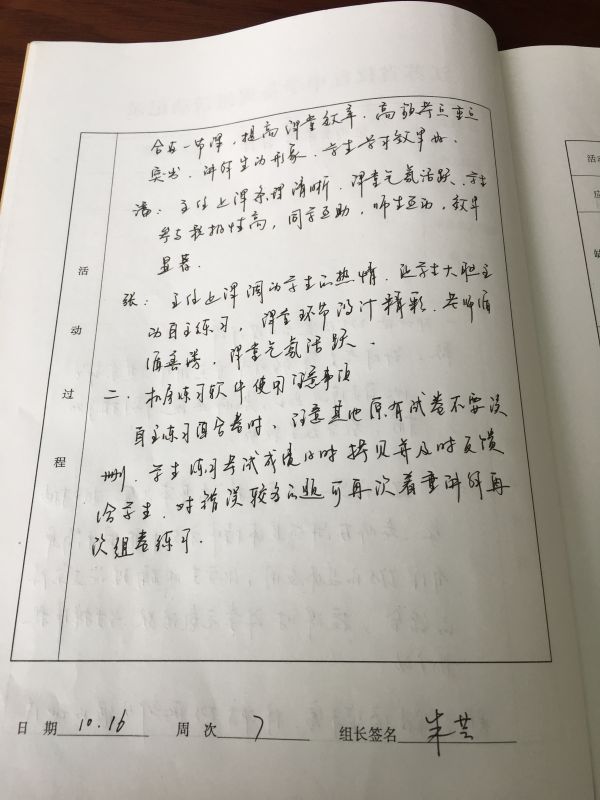 合友一节课，提高课堂效率，高频考点重点
突出，讲解生动形象，学生学习效果好。
潘：主任上课条理清晰，课堂气氛活跃，学生
参与积极性高，同学互助，师生互动，效果
显著。
张：主任上课调动学生的热情，让学生大胆主
动自主练习，课堂环节设计精彩，老师循
循善诱，课堂气氛活跃。
二．拓展练习软件使用注意事项
自主练习组合卷时，注意其他原有试卷不要误
删，学生练习考试成绩及时拷贝并及时反馈
给学生，对错误较多的题可再次着重讲解再
次组卷练习．
活动过程
日期 10.16 周次 7 组长签名 朱芸
活动